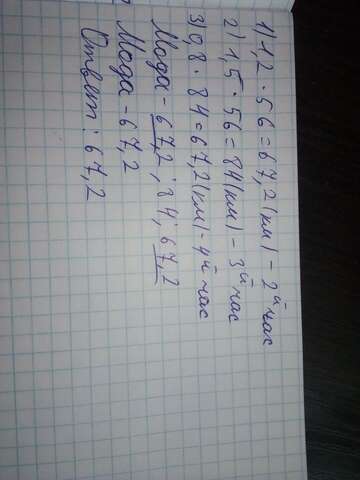 1) 1,2 · 56 = 67,2 (км) – 2й час
2) 1,5 · 56 = 84 (км) – 3й час
3) 0,8 · 84 = 67,2 (км) – 4й час
Мода – 67,2 ; 84 ; 67,2
Мода – 67,2
Ответ : 67,2